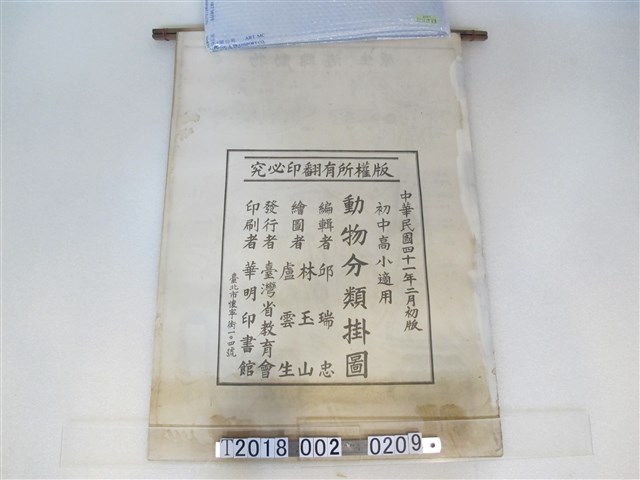 版權所有翻印必究
中華民國四十一年二月初版
初中高小適用
動物分類掛圖
編輯者 邱瑞忠
繪圖者 林玉山
盧雲生
發行者 臺灣省教育會
印刷者 華明印書館
臺北市懷寧街一〇四號
T2018 002 0209